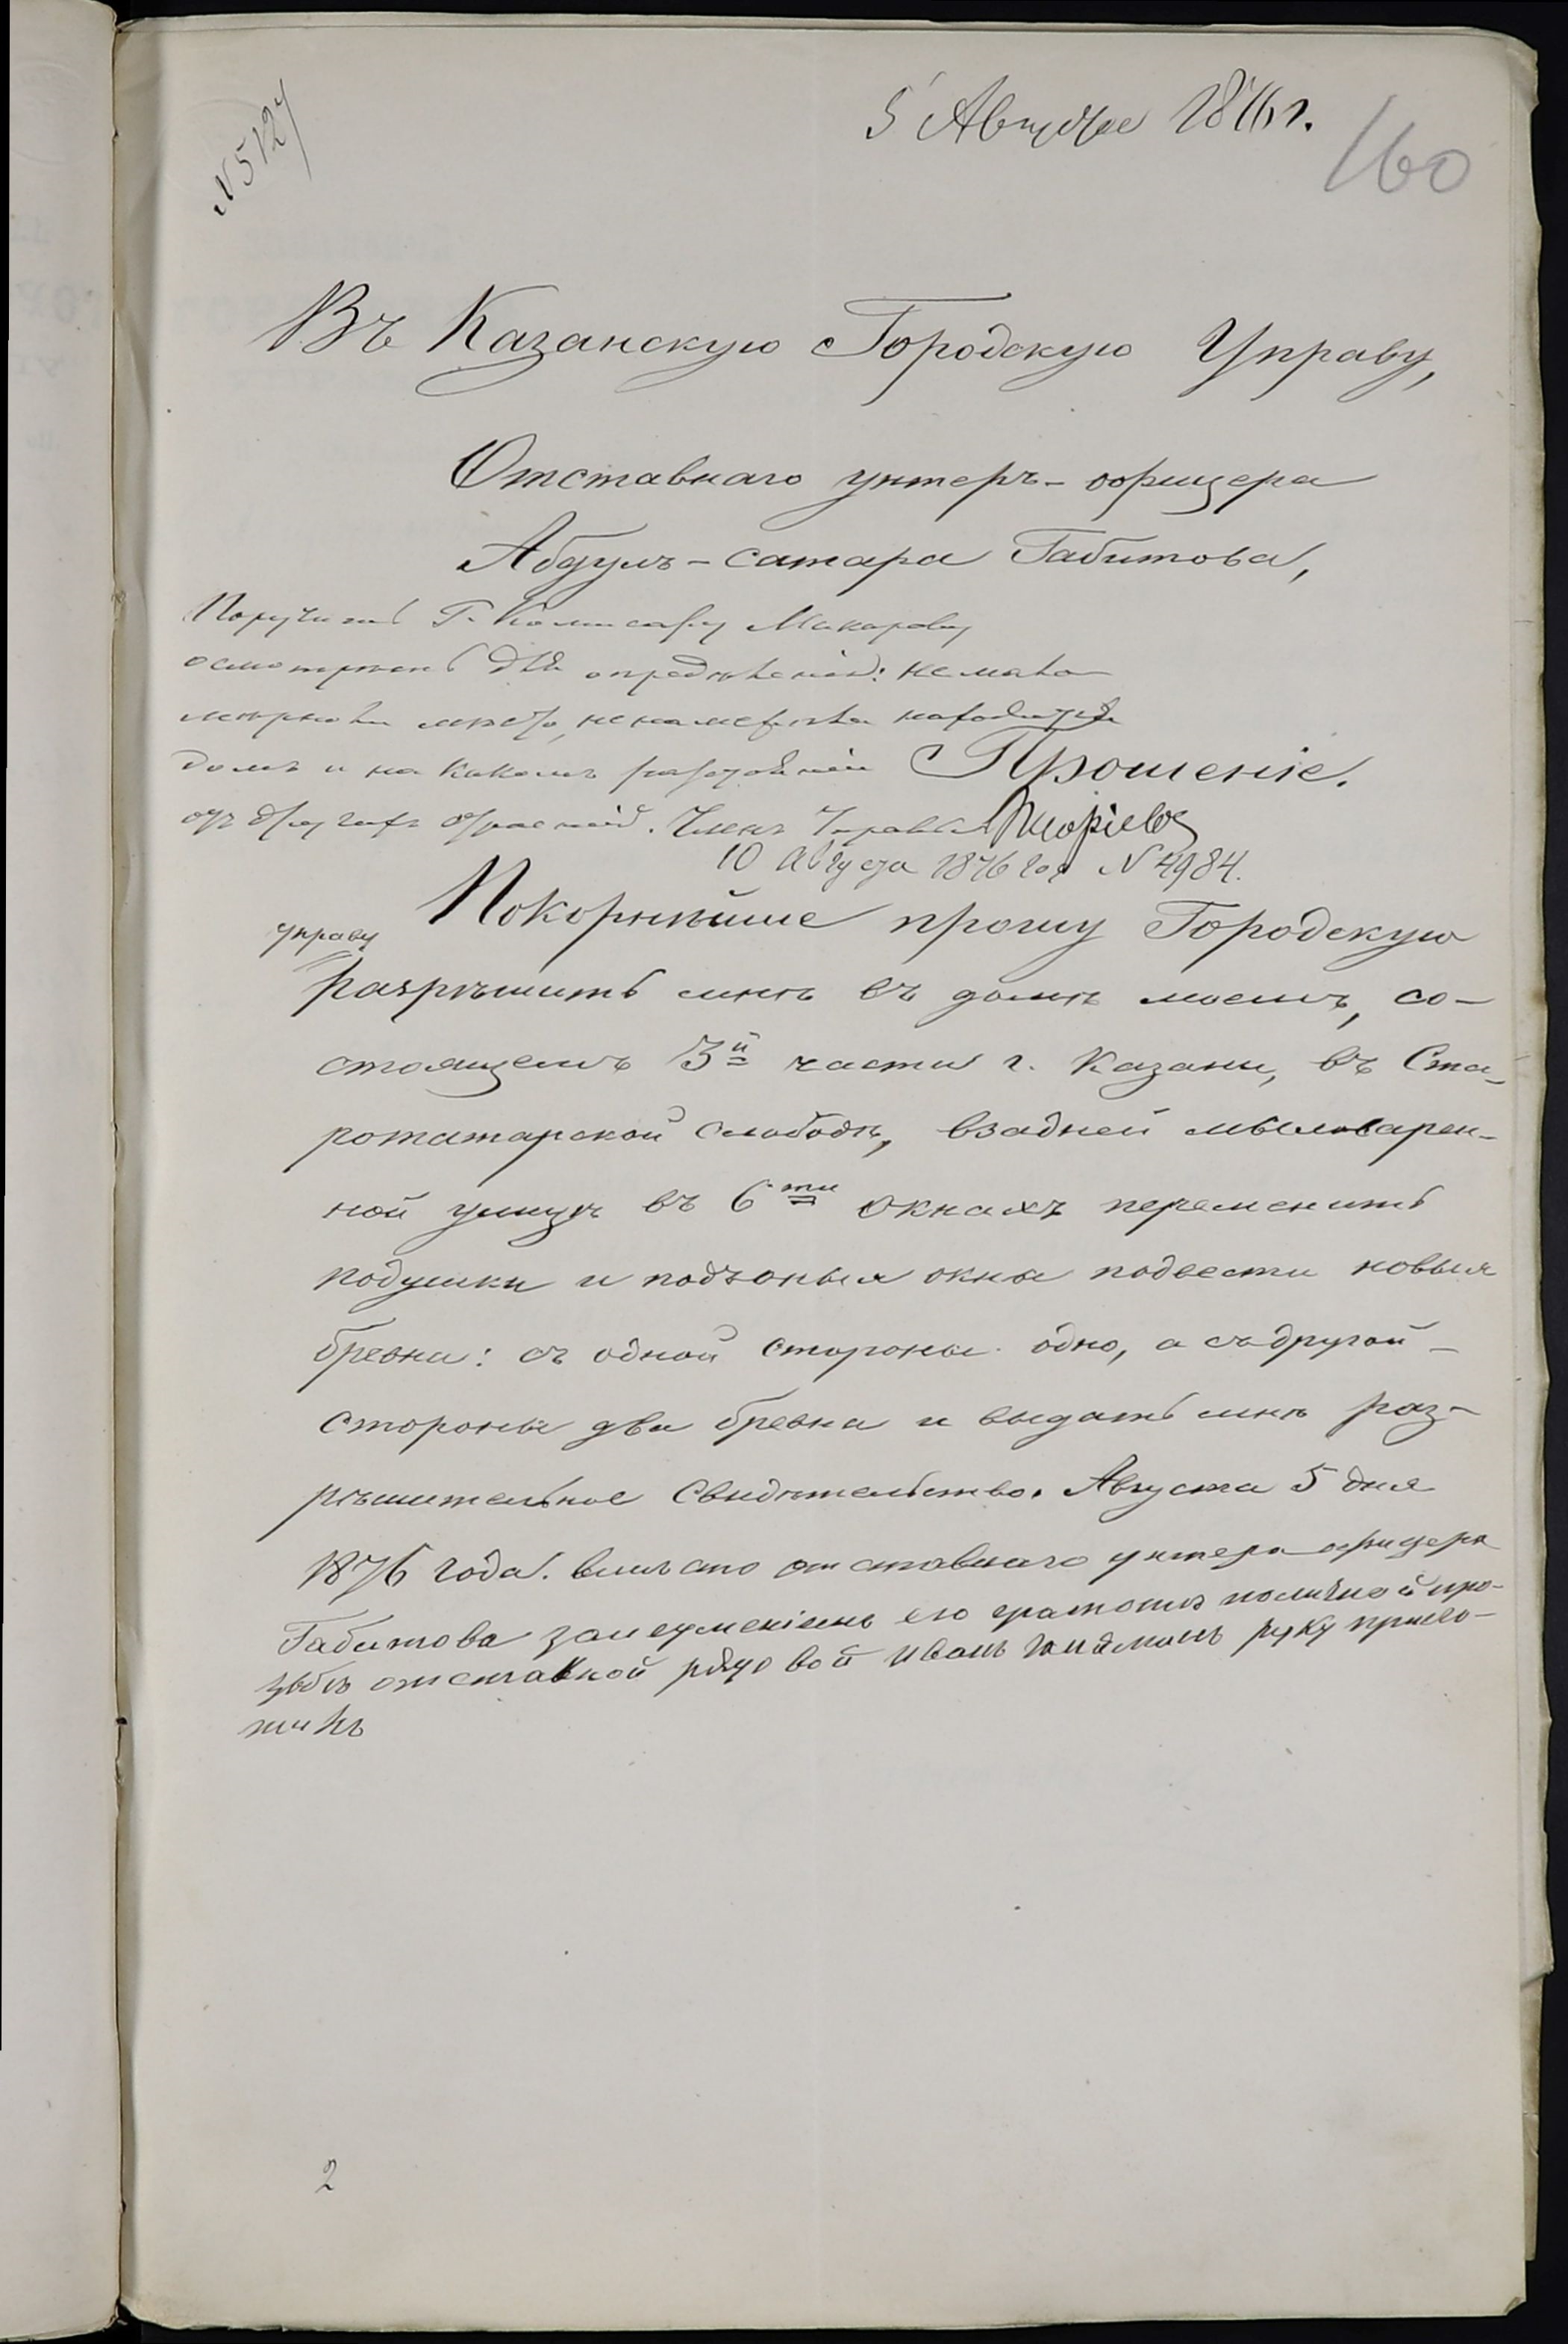 5 Августа 1876 г.
160
N 5127
Въ Казанскую Городскую Управу,
Отставнаго унтеръ-офицера
Абдулъ-сатара Габитова,
Поручить Г. Комисару Макарову
осмотреть для определенія: не мало
ли мерою место, не на меже ли находится
домъ и на какомъ разстояніи
отъ другихъ строеній. Членъ Управы
Прошеніе.
10 Августа 1876 года N 4984.
Покорнѣйше прошу Городскую
управу
разрѣшить мнѣ въ домѣ моемъ, со-
стоящемъ 3й части г. Казани, въ Ста-
ротатарской слободѣ, взадней мыловарен-
ной улицѣ въ 6ти окнахъ переменить
подушки и подъ оныя окны подвести новыя
бревна: съ одной стороны одно, а съ другой
стороны два бревна и выдать мнѣ раз-
рѣшительное свидѣтельство. Августа 5 дня
1876 года. вмѣсто отставнаго унтера офицера
Габитова занеуменіемъ его грамоты поличной про-
зьбѣ отставной рядовой Иванъ руку прило-
жилъ
2